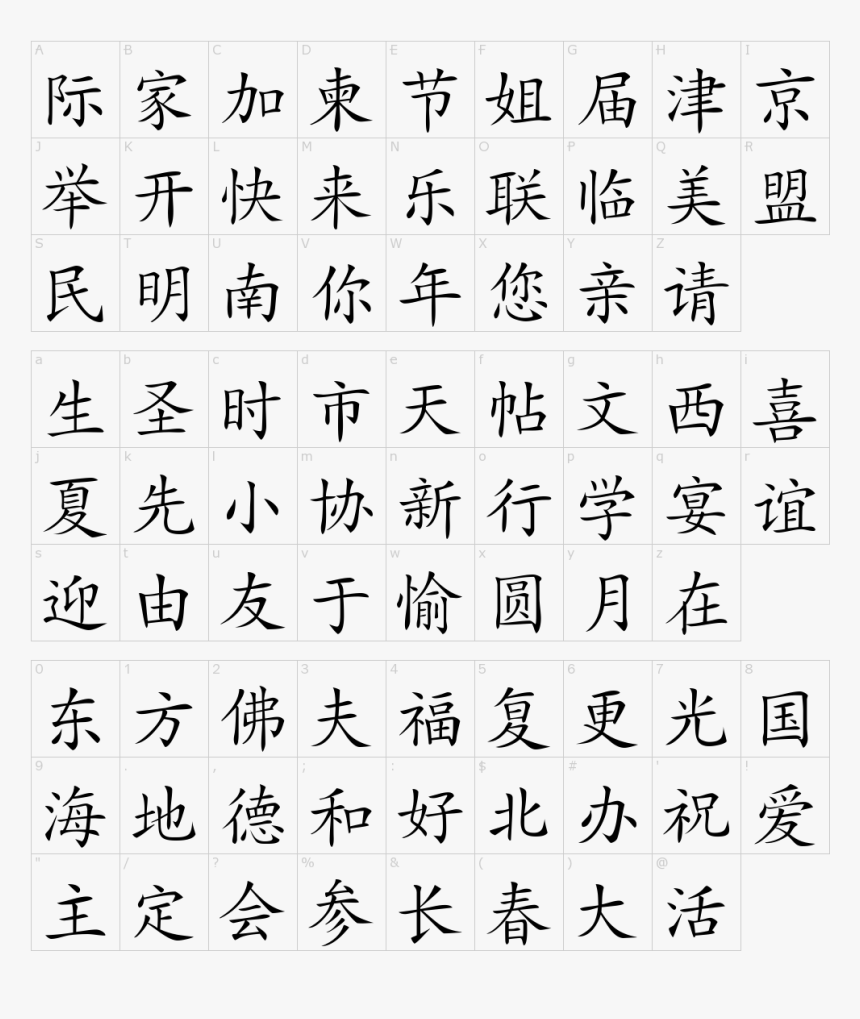 A B C D E F G H I
际 家 加 柬 节 姐 届 津 京
J K L M N O P Q R
举 开 快 来 乐 联 临 美 盟
S T U V W X Y Z
民 明 南 你 年 您 亲 请
a b c d e f g h i
生 圣 时 市 天 帖 文 西 喜
j k l m n o p q r
夏 先 小 协 新 行 学 宴 谊
s t u v w x y z
迎 由 友 于 愉 圆 月 在
0 1 2 3 4 5 6 7 8
东 方 佛 夫 福 复 更 光 国
9 . , ; : $ # ' !
海 地 德 和 好 北 办 祝 爱
" / ? % & ( ) @
主 定 会 参 长 春 大 活